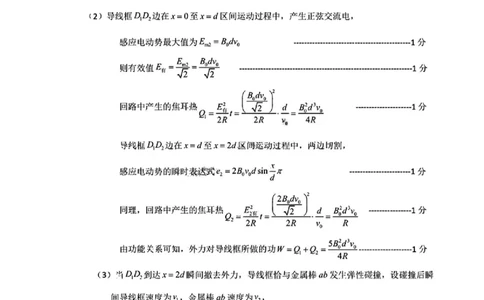 （2）导线框D₁D₂边在x=0至x=d区间运动过程中，产生正弦交流电，
感应电动势最大值为E_{m2}=B₀dv₀ ----------------------------------------1分
则有效值E_有=E_{m2}/√2=B₀dv₀/√2 ----------------------------------------1分
回路中产生的焦耳热Q₁=E_有²/2R t=(B₀dv₀/√2)²/2R·d/v₀=B₀²d³v₀/4R -------------------1分
导线框D₁D₂边在x=d至x=2d区间运动过程中，两边切割，
感应电动势的瞬时表达式e₂=2B₀v₀d sin x/d π ---------------------1分
同理，回路中产生的焦耳热Q₂=E_{2有}²/2R t=(2B₀dv₀/√2)²/2R·d/v₀=B₀²d³v₀/R ---------------1分
由功能关系可知，外力对导线框所做的功W=Q₁+Q₂=5B₀²d³v₀/4R -------------------1分
（3）当D₁D₂到达x=2d瞬间撤去外力，导线框恰与金属棒ab发生弹性碰撞，设碰撞后瞬
间导线框速度为v₁，金属棒ab速度为v₂，